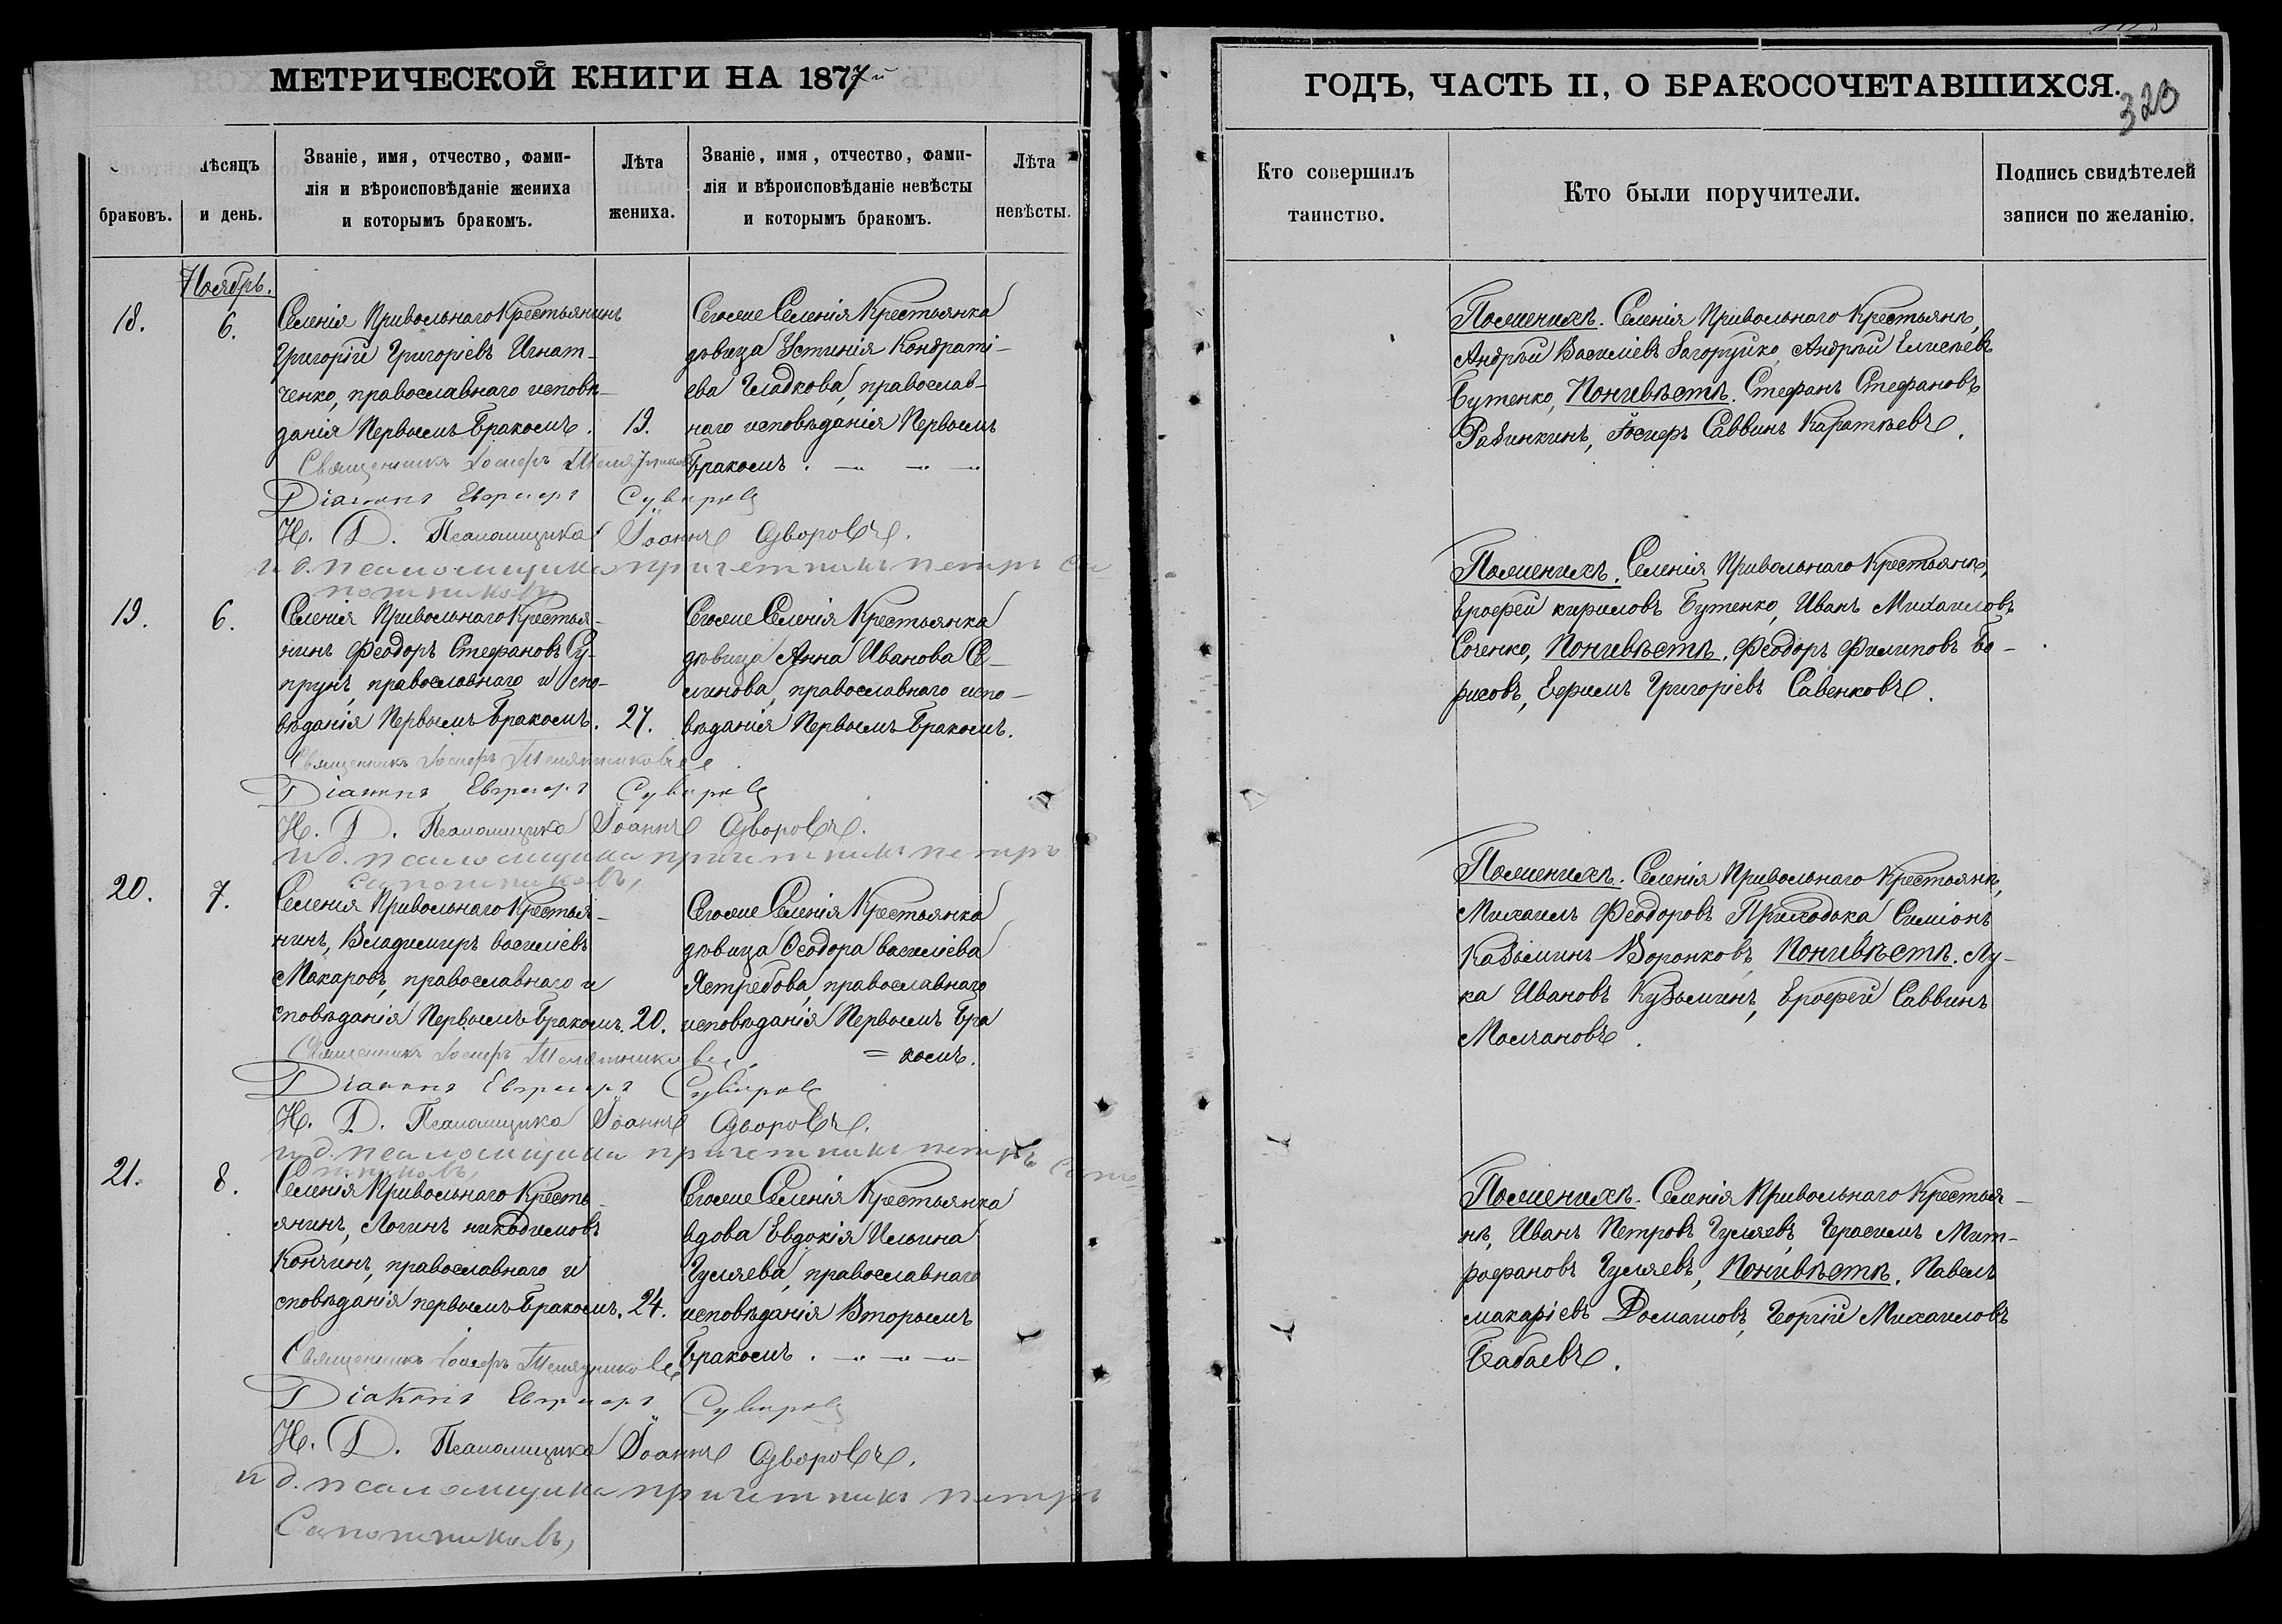 МЕТРИЧЕСКОЙ КНИГИ НА 1877й
ГОДЪ, ЧАСТЬ II, О БРАКОСОЧЕТАВШИХСЯ.
323
браковъ.
мѣсяцъ
и день.
Званіе, имя, отчество, фами-
лія и вѣроисповѣданіе жениха
и которымъ бракомъ.
Лѣта
жениха.
Званіе, имя, отчество, фами-
лія и вѣроисповѣданіе невѣсты
и которымъ бракомъ.
Лѣта
невѣсты.
Кто совершилъ
таинство.
Кто были поручители.
Подпись свидѣтелей
записи по желанію.
Ноябрь.
18.
6.
Селенія Привольнаго Крестьянинъ
Григорій Григоріевъ Игнат-
ченко, православнаго исповѣ-
данія Первымъ Бракомъ.
19.
Тогоже Селенія Крестьянка
дѣвица Устинія Кондраті-
ева Гладкова, православ-
наго исповѣданія Первымъ
Бракомъ.
Священникъ Іосифъ Телятниковъ
Діаконъ Евграфъ Суворовъ
И. Д. Псаломщика Іоаннъ Яворовъ.
и д. псаломщика причетникъ петръ Са
потниковъ
Поженихѣ. Селенія Привольнаго Крестьянѣ,
Андрей Василіевъ Загоруйко, Андрей Елисѣевъ
Бутенко, Поневѣстѣ. Стефанъ Стефановъ
Рабинкинъ, Іосифъ Саввинъ Каратѣевъ.
19.
6.
Селенія Привольнаго Крестья-
нинъ Феодоръ Стефановъ Су-
прунъ, православнаго испо-
вѣданія Первымъ Бракомъ.
27.
Тогоже Селенія Крестьянка
дѣвица Анна Иванова Се-
линова, православнаго испо-
вѣданія Первымъ Бракомъ.
Священникъ Іосифъ Телятниковъ
Діаконъ Евграфъ Суворовъ
И. Д. Псаломщика Іоаннъ Яворовъ.
и д. псаломщика причетникъ петръ
Сапотниковъ,
Поженихѣ. Селенія Привольнаго Крестьянѣ,
Ерофей кириловъ Бутенко, Иванъ Михаиловъ
Соченко, Поневѣстѣ. Феодоръ Филиповъ Бо-
рисовъ, Ефимъ Григоріевъ Савенковъ.
20.
7.
Селенія Привольнаго Крестья-
нинъ, Владимиръ василіевъ
Макаровъ, православнаго и
сповѣданія Первымъ Бракомъ.
20.
Тогоже Селенія Крестьянка
дѣвица Феодора василіева
Ястребова, православнаго
исповѣданія Первымъ Бра
= комъ.
Священникъ Іосифъ Телятниковъ
Діаконъ Евграфъ Суворовъ
И. Д. Псаломщика Іоаннъ Яворовъ.
и д. псаломщика причетникъ петръ Сапо
тниковъ
Поженихѣ. Селенія Привольнаго Крестьянѣ,
Михаилъ Феодоровъ Приходька Симіонъ
Казьминъ Воронковъ, Поневѣстѣ. Лу-
ка Ивановъ Кузьминъ, Ерофей Саввинъ
Молчановъ.
21.
8.
Селенія Привольнаго Кресть-
янинъ, Логинъ никодимовъ
Конячинъ, православнаго и
сповѣданія первымъ Бракомъ.
24.
Тогоже Селенія Крестьянка
вдова Евдокія Ильина
Гуляева, православнаго
исповѣданія Вторымъ
Бракомъ.
Священникъ Іосифъ Телятниковъ
Діаконъ Евграфъ Суворовъ
И. Д. Псаломщика Іоаннъ Яворовъ.
и д. псаломщика причетникъ петръ
Сапотниковъ,
Поженихѣ. Селенія Привольнаго Крестья-
нѣ, Иванъ Петровъ Гуляевъ, Герасимъ Мит-
рофановъ Гуляевъ, Поневѣстѣ. Павелъ
макаріевъ Домашовъ, Георгій Михаиловъ
Бабаевъ.